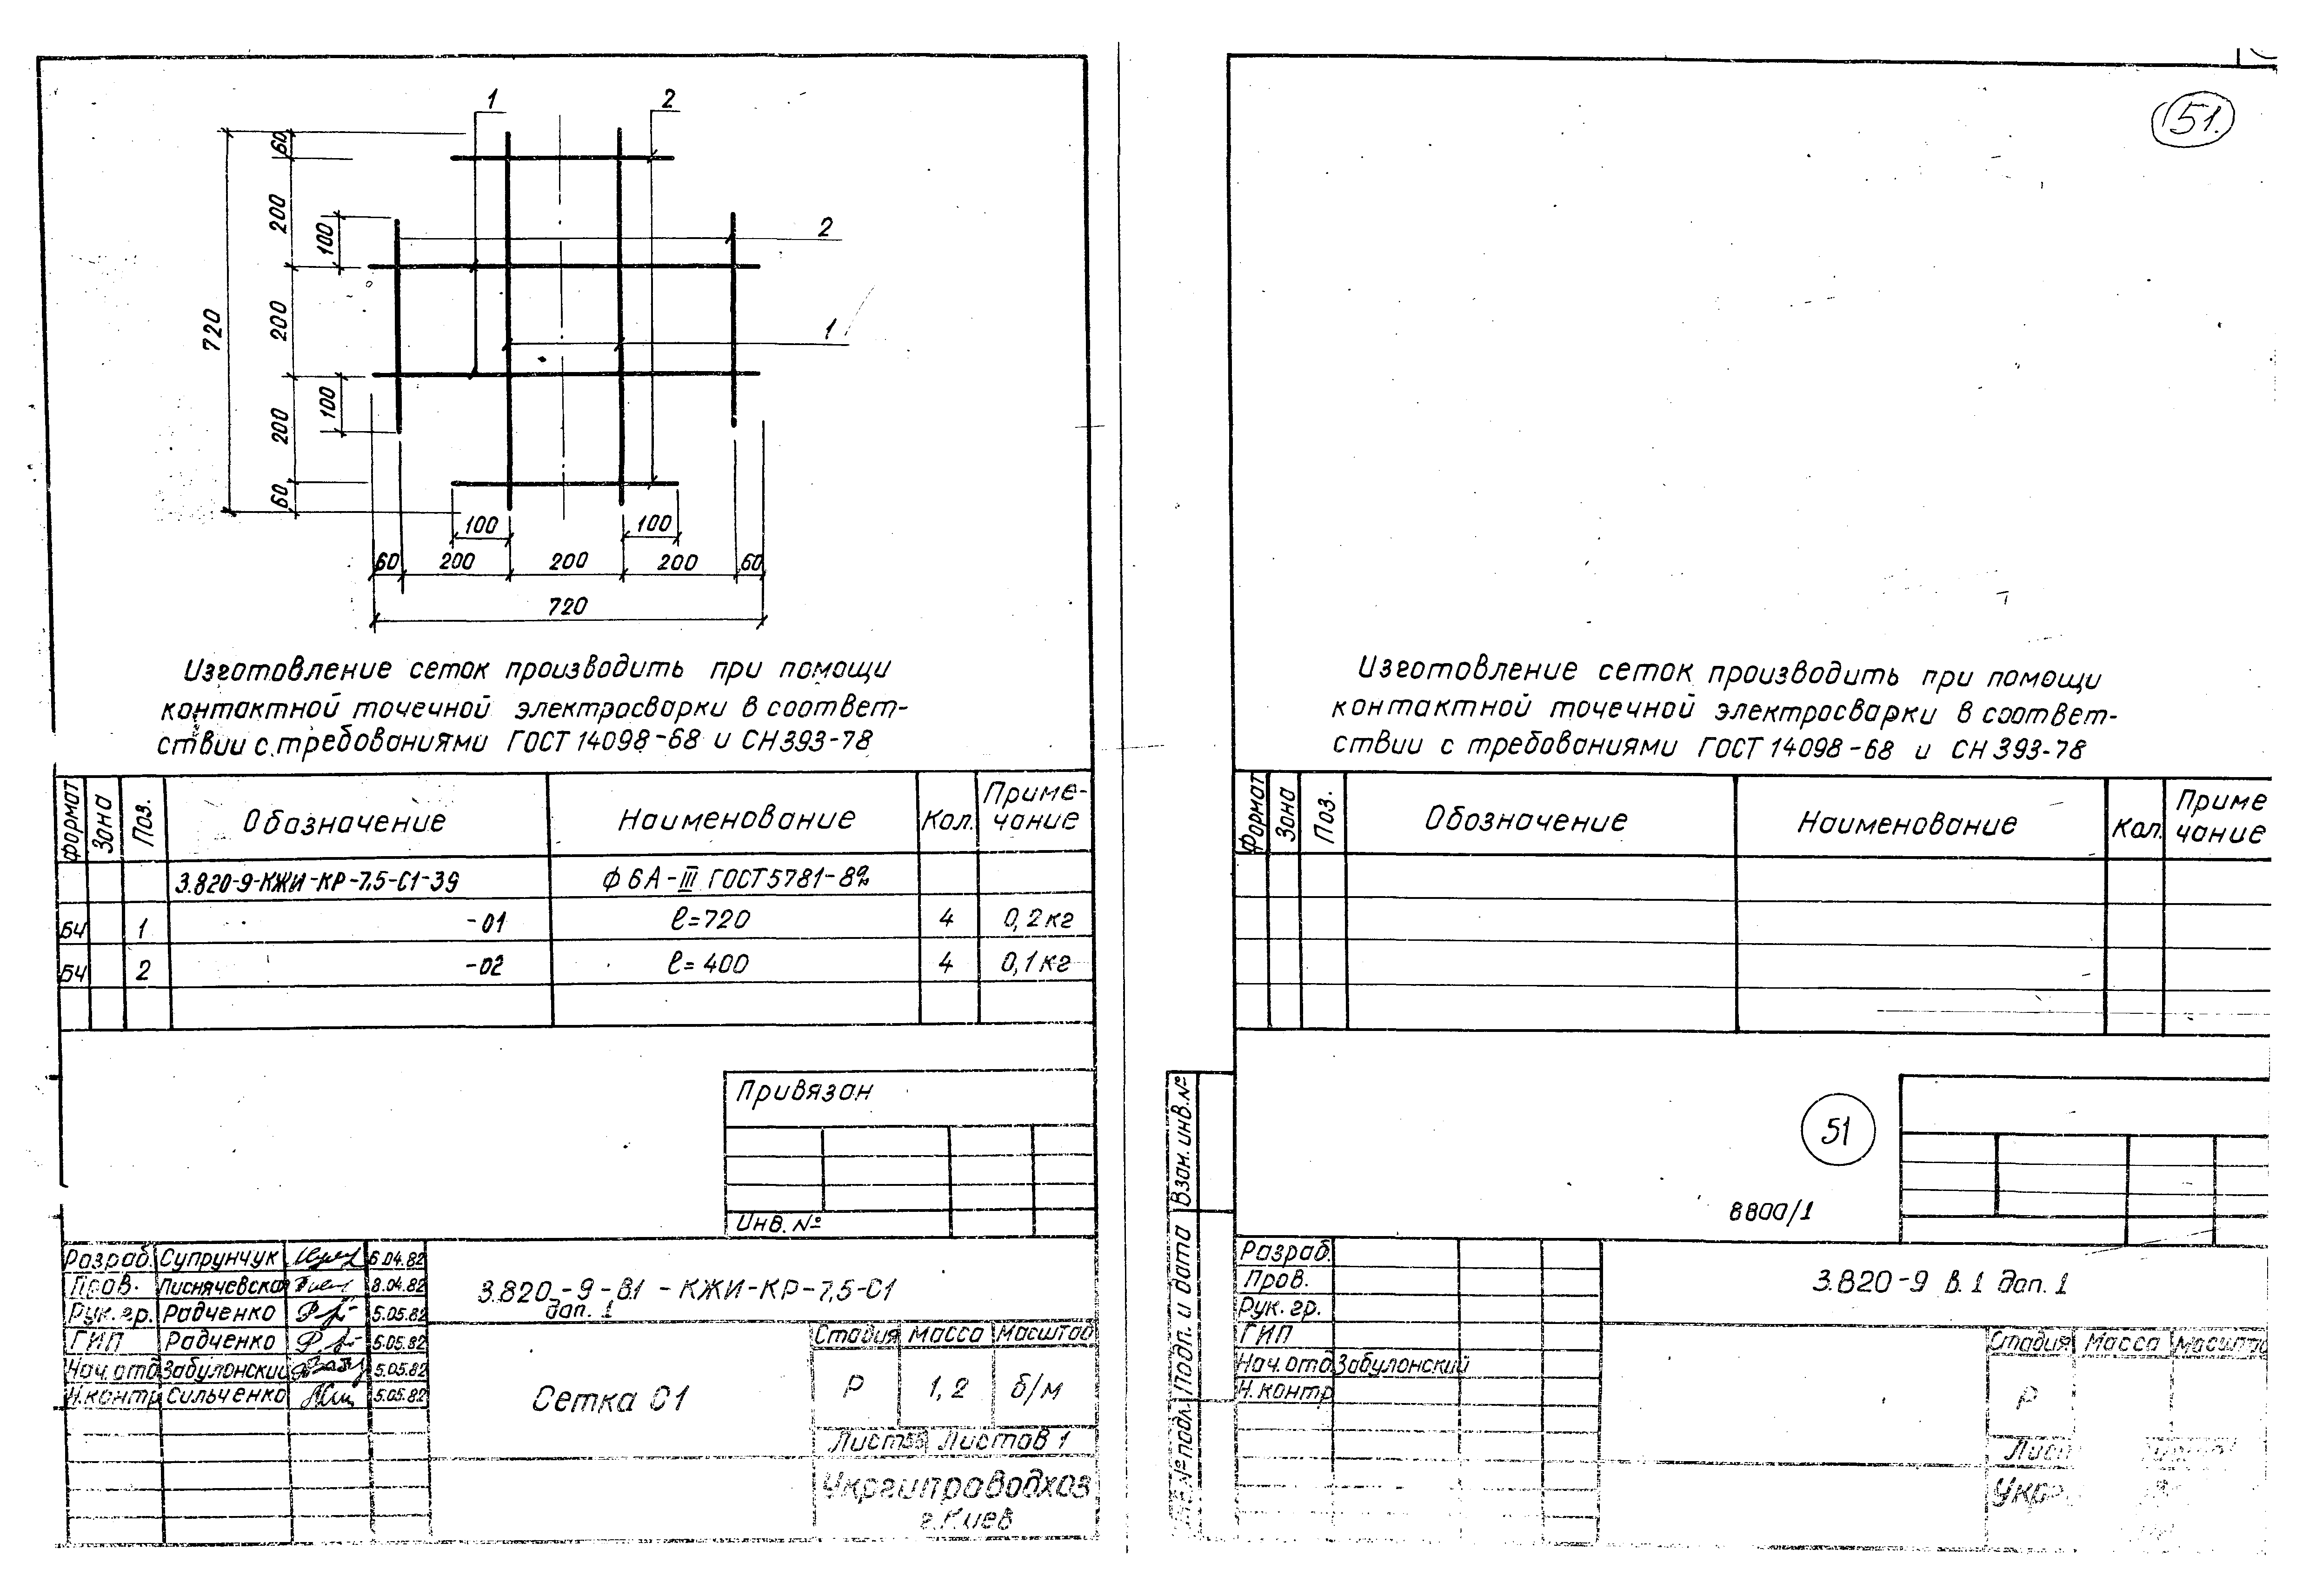 1
2
60
200
100
2
720
200
1
200
100
60
100
100
60
200
200
200
60
720
Изготовление сеток производить при помощи
контактной точечной электросварки в соответ-
ствии с требованиями ГОСТ 14098-68 и СН 393-78
Формат Зона Поз. Обозначение Наименование Кол. Приме-
чание
3.820-9-КЖИ-КР-7,5-С1-39 ф 6А-III ГОСТ 5781-82
БЧ 1 -01 ℓ=720 4 0,2кг
БЧ 2 -02 ℓ=400 4 0,1кг
Привязан
Инв. №
Разраб. Супрунчук 6.04.82
Пров. Лиснячевская 8.04.82
Рук.гр. Радченко 5.05.82
ГИП Радченко 5.05.82
Нач.отд Забулонский 5.05.82
Н.контр Сильченко 5.05.82
3.820-9-В.1-КЖИ-КР-7,5-С1
доп. 1
Сетка С1
Стадия Масса Масштаб
Р 1,2 б/м
Лист Листов 1
Укргипроводхоз
г. Киев
51.
Изготовление сеток производить при помощи
контактной точечной электросварки в соответ-
ствии с требованиями ГОСТ 14098-68 и СН 393-78
Формат Зона Поз. Обозначение Наименование Кол. Приме
чание
51
8800/1
Взам. инв. №
Подп. и дата
№ подл.
Разраб.
Пров.
Рук. гр.
ГИП
Нач.отд Забулонский
Н.контр
3.820-9 В.1 доп. 1
Стадия Масса Масшта
Р
Лист
Укр